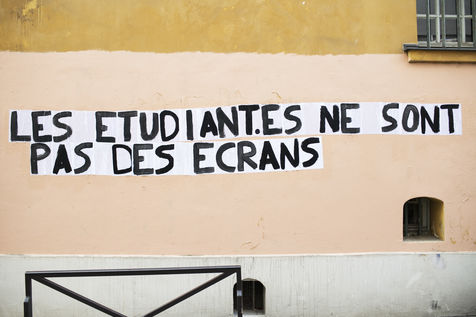 LES ETUDIANT.ES NE SONT
PAS DES ECRANS